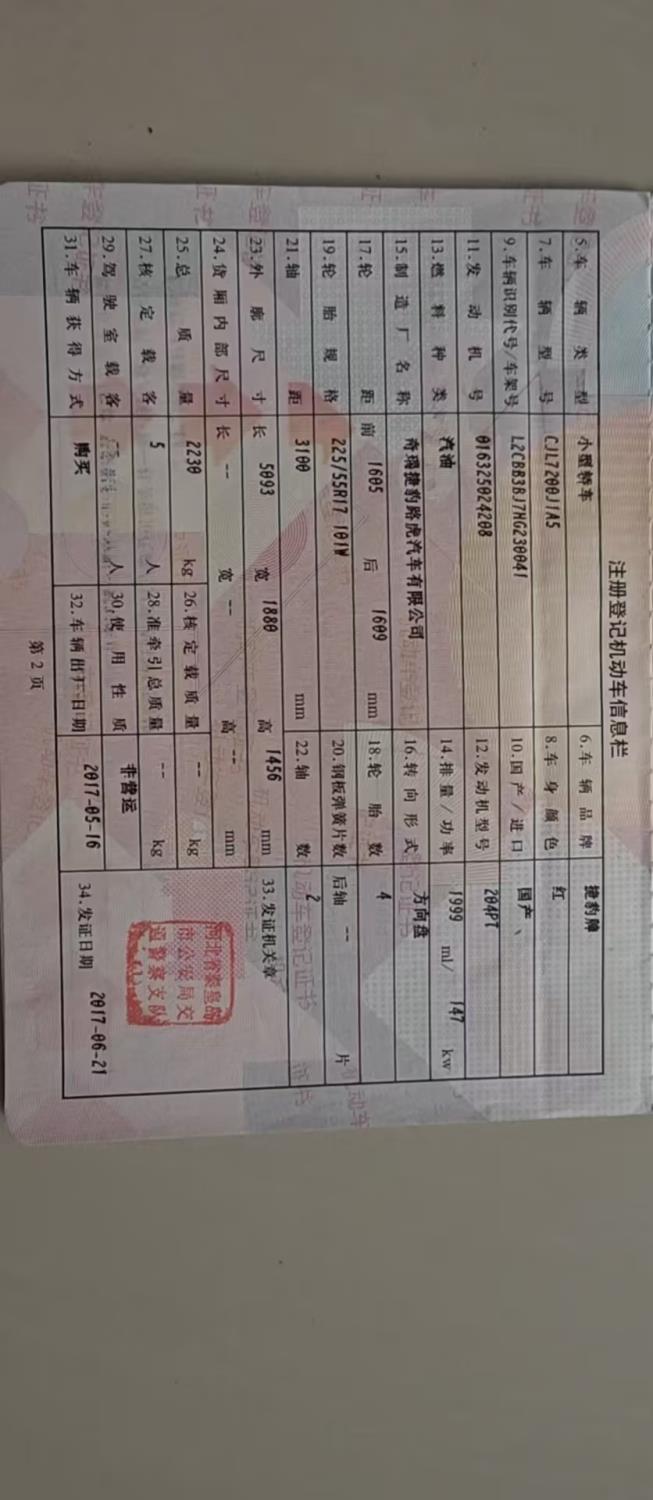 注册登记机动车信息栏
5.车辆类型 小型轿车 6.车辆品牌 捷豹牌
7.车辆型号 CJL7200J1A5 8.车身颜色 红
9.车辆识别代号/车架号 L2CBB3BJ7HG230041 10.国产/进口 国产
11.发动机号 016325024208 12.发动机型号 204PT
13.燃料种类 汽油 14.排量/功率 1999 ml/ 147 kw
15.制造厂名称 奇瑞捷豹路虎汽车有限公司 16.转向形式 方向盘
17.轮距 前 1605 后 1609 mm 18.轮胎数 4
19.轮胎规格 225/55R17 101W 20.钢板弹簧片数 后轴 -- 片
21.轴距 3100 mm 22.轴数 2
23.外廓尺寸 长 5093 宽 1880 高 1456 mm 33.发证机关章
24.货厢内部尺寸 长 -- 宽 -- 高 -- mm
25.总质量 2230 kg 26.核定载质量 -- kg
27.核定载客 5 人 28.准牵引总质量 -- kg
29.驾驶室载客 -- 人 30.使用性质 非营运
31.车辆获得方式 购买 32.车辆出厂日期 2017-05-16 34.发证日期 2017-06-21
河北省秦皇岛
市公安局交
通警察支队
第2页